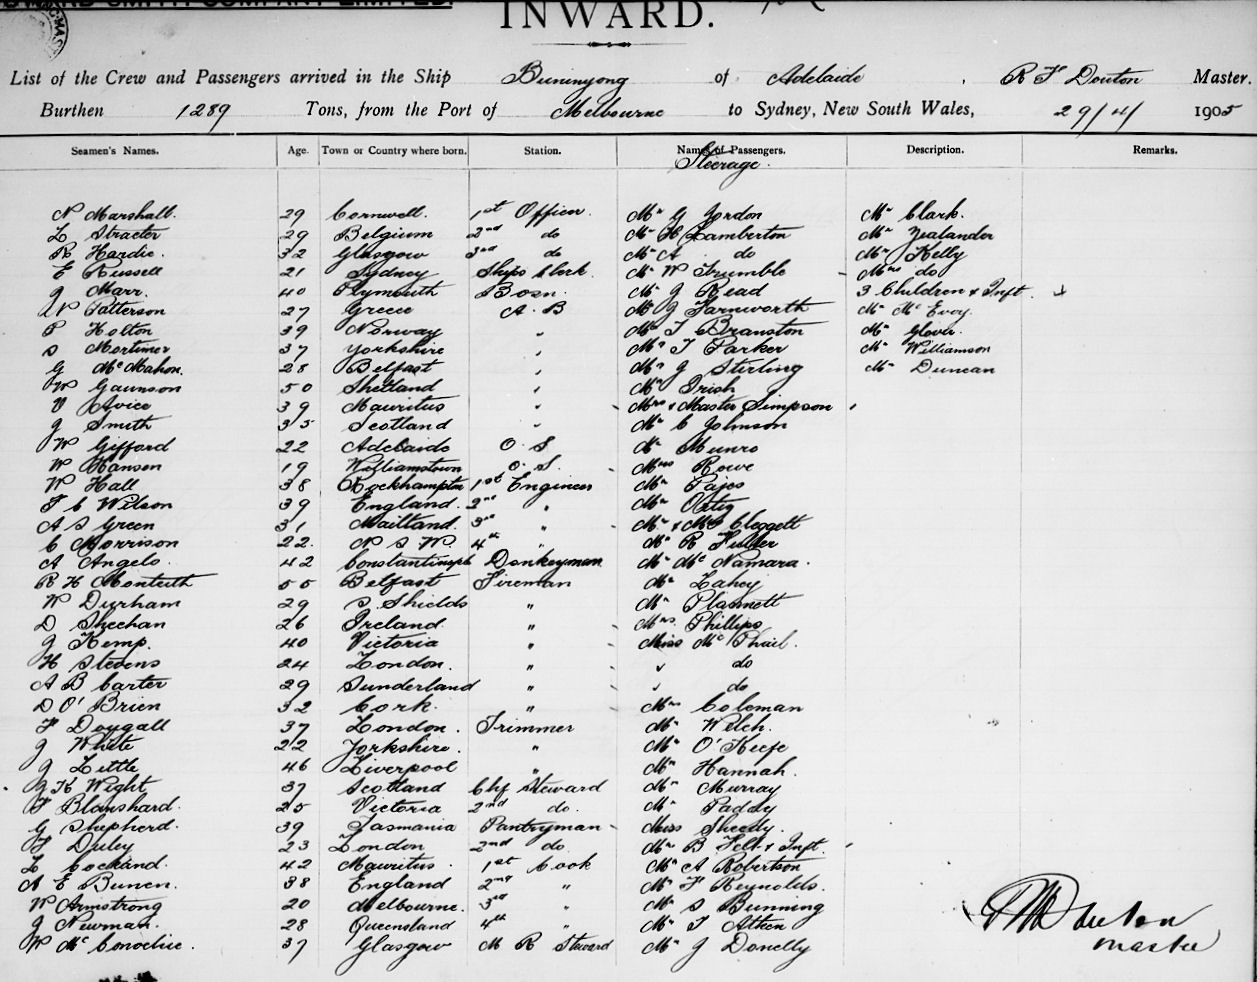 INWARD.
List of the Crew and Passengers arrived in the Ship Buninyong of Adelaide, R F Douton Master.
Burthen 1289 Tons, from the Port of Melbourne to Sydney, New South Wales, 29/4/ 1905
Seamen's Names. Age. Town or Country where born. Station. Names of Passengers. Description. Remarks.
Steerage.
N Marshall. 29 Cornwell. 1st Officer. Mr G Jordon Mr Clark.
L Stracter 29 Belgium 2nd do Mr H Lamberton Mr Zealander
R Hardie. 32 Glasgow 3rd do Mr A do Mr Kelly
E Russell 21 Sydney Ships Clerk. Mr W Trumble Mrs do
J Marr. 40 Plymouth Bosn. Mr J Read 3 Children & Inft.
N Patterson 27 Greece A. B Mr J Farnworth Mr McEvoy.
P Holton 39 Norway " Mr T Branston Mr Glover.
S Mortimer 37 Yorkshire " Mr T Parker Mr Williamson
G McMahon. 28 Belfast " Mr J Stirling Mr Duncan
W Gaunson 50 Shetland " Mr Irish
V Avice 39 Mauritus " Mrs & Master Simpson
J Smith 35 Scotland " Mr C Johnson
W Gifford 22 Adelaide O. S Mr Munro
W Hansen 19 Williamstown O. S. Mrs Rowe
W Hall 38 Rockhampton 1st Engineer Mr Pajos
F C Wilson 39 England. 2nd " Mr Ortig
A S Green 31 Maitland. 3rd " Mr & Mrs Cleggett
C Morrison 22. N S W. 4th " Mr R Fuller
A Angelo. 42 Constantinople Donkeyman Mr McNamara.
R H Monteith 55 Belfast Fireman Mr Lahey
W Durham 29 S. Shields " Mr Plannett
D Sheehan 26 Ireland. " Mrs. Phillips
J Kemp. 40 Victoria " Miss McPhail.
H Stevens 24 London. " " do
A B Carter 29 Sunderland " " do
D O'Brien 32 Cork. " Mr Coleman
F Dougall 37 London. Trimmer Mr Welch.
J White 22 Yorkshire. " Mr O'Keefe
J Little 46 Liverpool " Mr Hannah.
J K Wight 37 Scotland Chf Steward Mr Murray
F Blanshard. 25 Victoria 2nd do. Mr Paddy
G Shepherd. 39 Tasmania Pantryman Miss Sheedy.
F Duley 23 London 2nd do. Mr B Felt & Inft.
L Cockand. 42 Mauritus. 1st Cook Mr A Robertson
A E Bunen. 38 England 2nd " Mr F Reynolds.
W Armstrong 20 Melbourne. 3rd " Mr S Bunning
J Newman. 28 Queensland 4th " Mr T Atken
W McConochie. 37 Glasgow M R Steward Mr J Donelly
R F Douton
Master